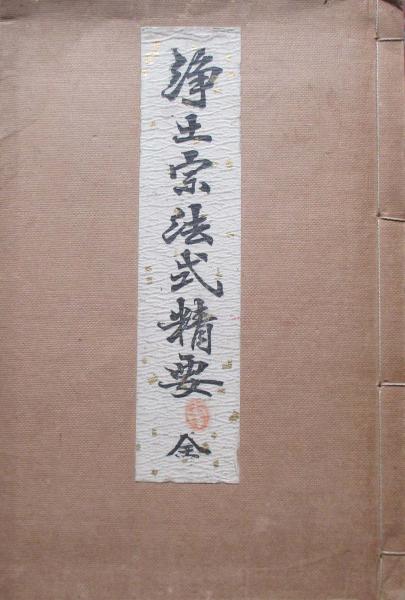 浄土宗法式精要
全